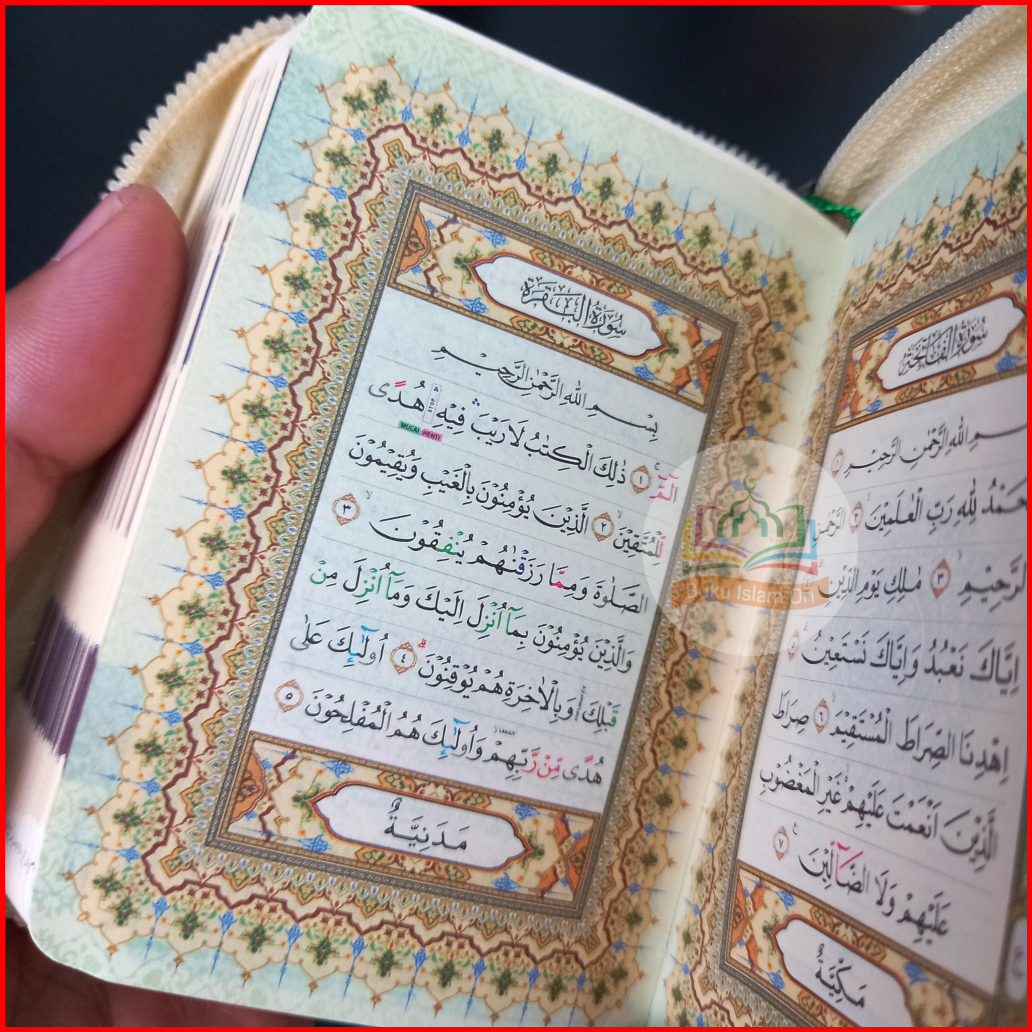 سُورَةُ الْفَاتِحَةِ
بِسْمِ اللهِ الرَّحْمٰنِ الرَّحِيْمِ ١
اَلْحَمْدُ لِلّٰهِ رَبِّ الْعٰلَمِيْنَ ٢ الرَّحْمٰنِ
الرَّحِيْمِ ٣ مٰلِكِ يَوْمِ الدِّيْنِ
اِيَّاكَ نَعْبُدُ وَاِيَّاكَ نَسْتَعِيْنُ
اِهْدِنَا الصِّرَاطَ الْمُسْتَقِيْمَ ٦ صِرَاطَ
الَّذِيْنَ اَنْعَمْتَ عَلَيْهِمْ غَيْرِ الْمَغْضُوْبِ
عَلَيْهِمْ وَلَا الضَّاۤلِّيْنَ ٧
مَكِّيَّةٌ
سُورَةُ الْبَقَرَةِ
بِسْمِ اللهِ الرَّحْمٰنِ الرَّحِيْمِ
الۤمّۤ ١ ذٰلِكَ الْكِتٰبُ لَا رَيْبَ ۛ فِيْهِ ۛ هُدًى
STOP
MULAI HENTI
لِّلْمُتَّقِيْنَ ٢ الَّذِيْنَ يُؤْمِنُوْنَ بِالْغَيْبِ وَيُقِيْمُوْنَ
الصَّلٰوةَ وَمِمَّا رَزَقْنٰهُمْ يُنْفِقُوْنَ ٣
وَالَّذِيْنَ يُؤْمِنُوْنَ بِمَآ اُنْزِلَ اِلَيْكَ وَمَآ اُنْزِلَ مِنْ
قَبْلِكَ وَبِالْاٰخِرَةِ هُمْ يُوْقِنُوْنَ ٤ اُولٰۤىِٕكَ عَلٰى
LANJUT
هُدًى مِّنْ رَّبِّهِمْ وَاُولٰۤىِٕكَ هُمُ الْمُفْلِحُوْنَ ٥
مَدَنِيَّةٌ
Buku Islam Ori